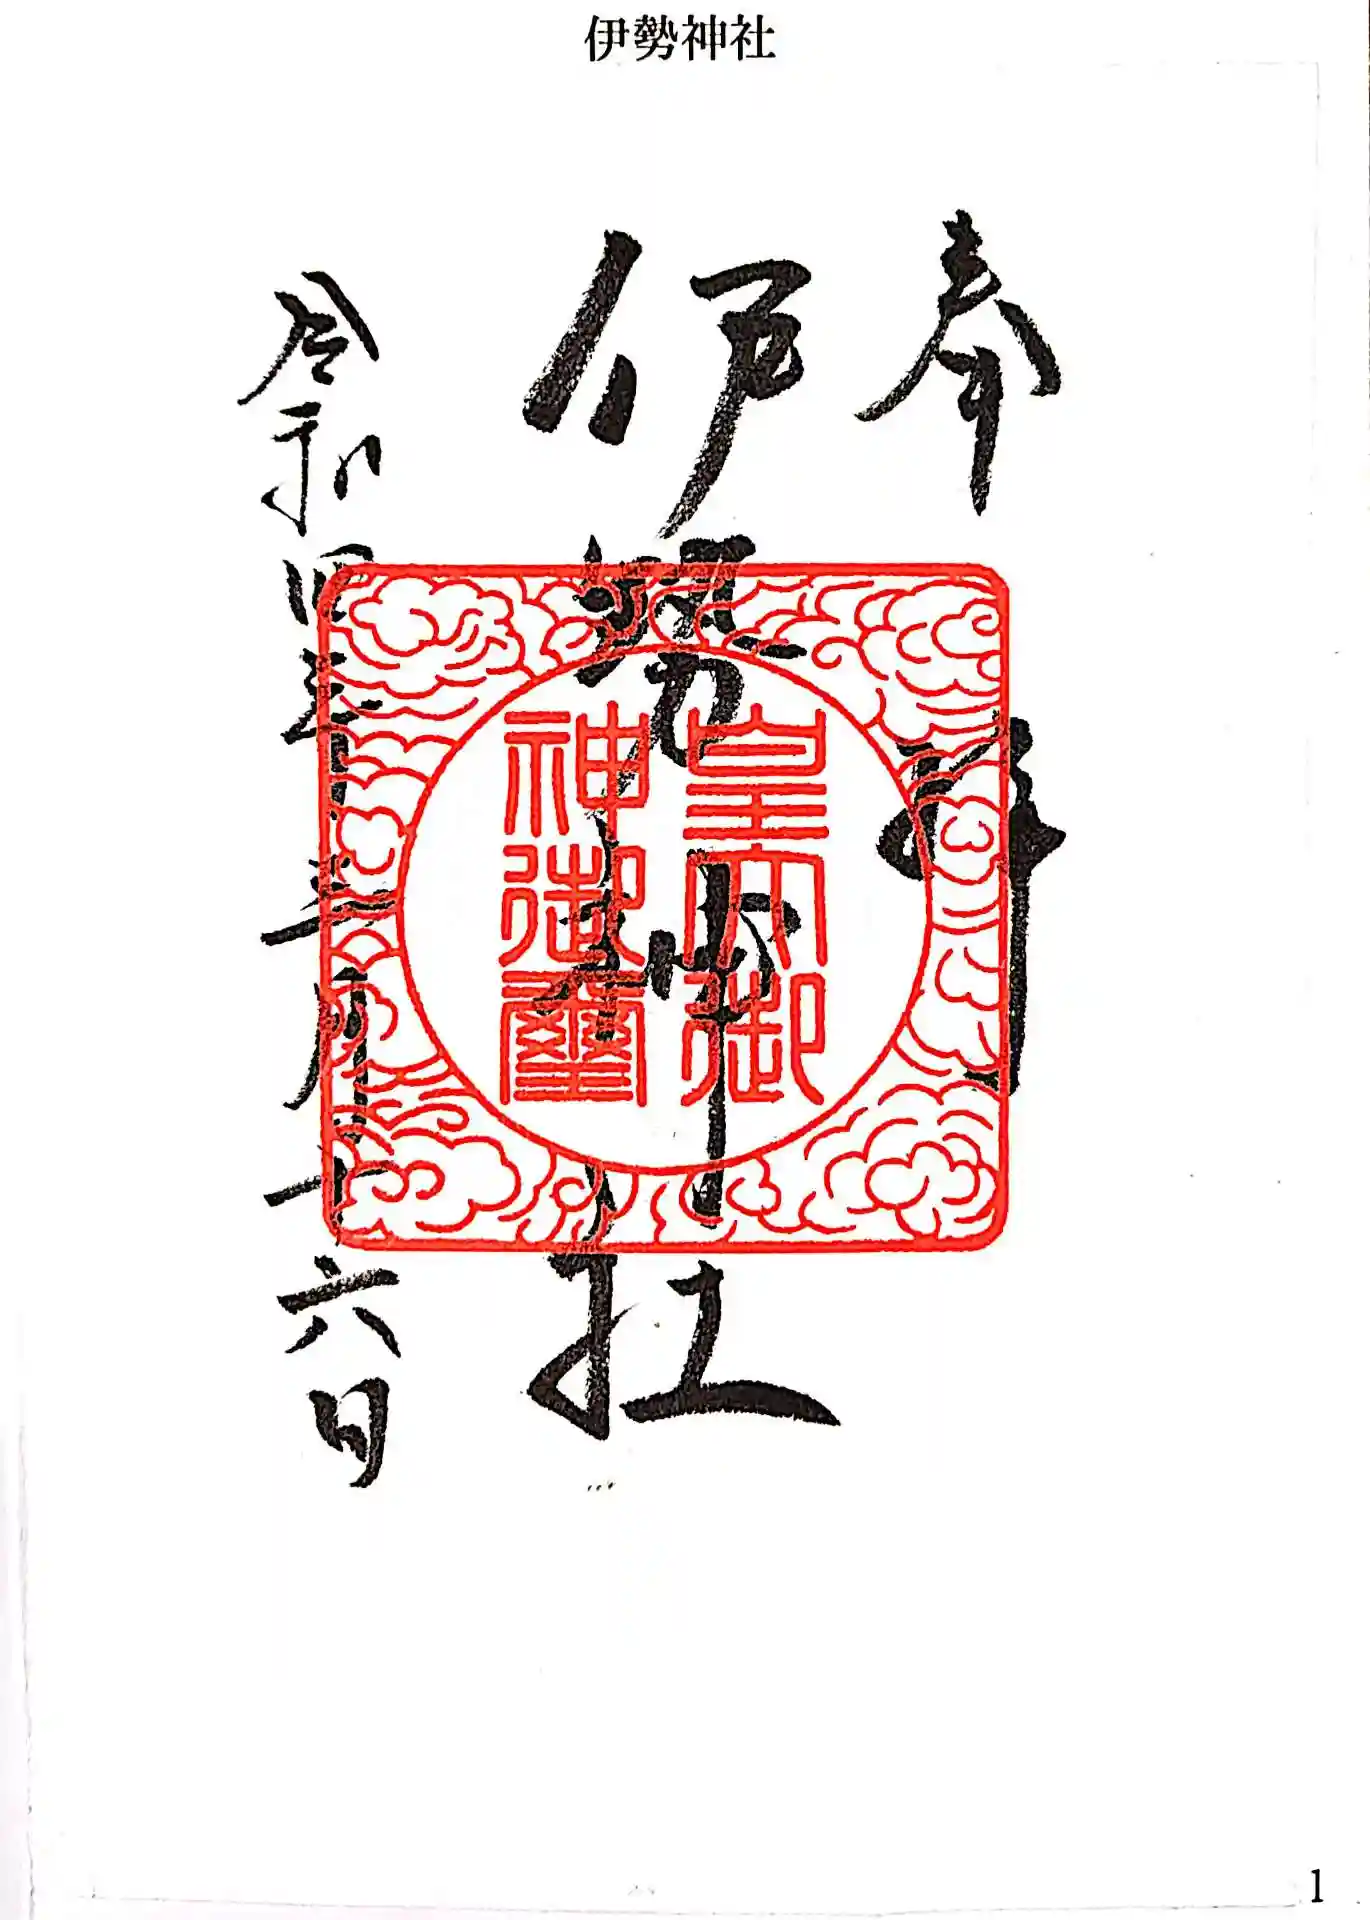 伊勢神社
奉拝
伊勢神社
皇大御
神御璽
令和四年十一月十六日
1